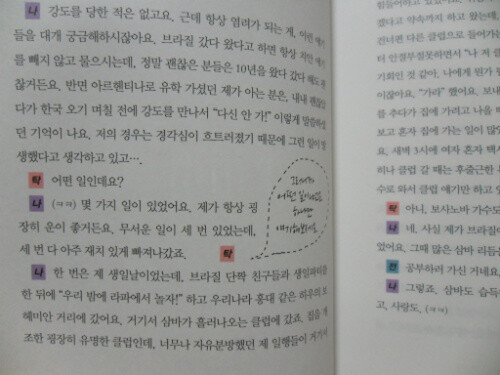 나 강도를 당한 적은 없고요. 근데 항상 염려가 되는 게, 이런 얘기
들을 대개 궁금해하시잖아요. 브라질 갔다 왔다고 하면 항상 치안 얘기
를 빼지 않고 물으시는데, 정말 괜찮은 분들은 10년을 왔다 갔다 해도 괜
찮거든요. 반면 아르헨티나로 유학 가셨던 제가 아는 분은, 내내 괜찮았
다가 한국 오기 며칠 전에 강도를 만나서 "다신 안 가!" 이렇게 말씀하셨
던 기억이 나요. 저의 경우는 경각심이 흐트러졌기 때문에 그런 일이 발
생했다고 생각하고 있고….
탁 어떤 일인데요?
나 (ㅋㅋ) 몇 가지 일이 있었어요. 제가 항상 굉
장히 운이 좋거든요. 무서운 일이 세 번 있었는데,
세 번 다 아주 재치 있게 빠져나갔죠. 탁
나 한 번은 제 생일날이었는데, 브라질 단짝 친구들과 생일파티를
한 뒤에 "우리 밤에 라파에서 놀자!" 하고 우리나라 홍대 같은 히우의 보
헤미안 거리에 갔어요. 거기서 삼바가 흘러나오는 클럽에 갔죠. 집을 개
조한 굉장히 유명한 클럽인데, 너무나 자유분방했던 제 일행들이 거기서
힘들어하고 있어
겠다고 약속까지 하고 왔는데,
건너편 다른 클럽으로 들어가
터 안절부절못하면서 "나 저 클
기회인 것 같아. 나에게 뭔가
이잖아요. "가라" 했어요. 보내
를 추다가 집에 가려고 나올
보고 혼자 집에 가는 일이 많았
요. 새벽 3시에 여자 혼자 택시
히나 클럽 갈 때는 후줄근한
수로 와서 클럽 얘기만 하고
탁 아니, 보사노바 가수도
나 네. 사실 제가 브라질
었어요. 그때 많은 삼바 리듬
공부하러 가신 거네요
나 그렇죠. 삼바도 습득
고, 사랑도, (ㅋㅋ)